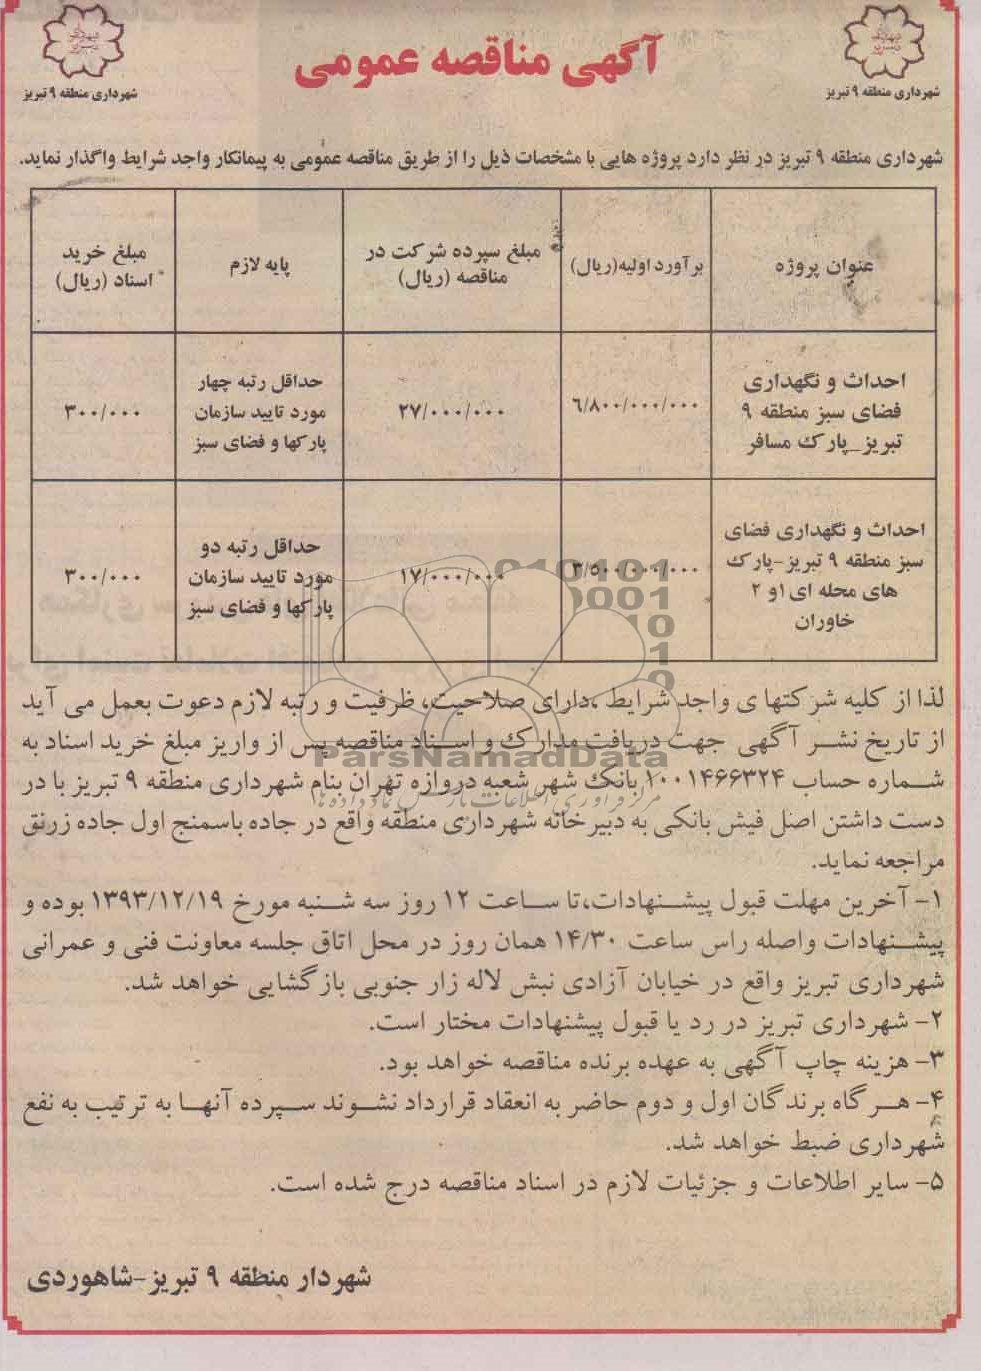 شهرداری منطقه ۹ تبریز
آگهی مناقصه عمومی
شهرداری منطقه ۹ تبریز
شهرداری منطقه ۹ تبریز در نظر دارد پروژه هایی با مشخصات ذیل را از طریق مناقصه عمومی به پیمانکار واجد شرایط واگذار نماید.
عنوان پروژه
برآورد اولیه(ریال)
مبلغ سپرده شرکت در
مناقصه (ریال)
پایه لازم
مبلغ خرید
اسناد (ریال)
احداث و نگهداری
فضای سبز منطقه ۹
تبریز_پارک مسافر
۶/۸۰۰/۰۰۰/۰۰۰
۲۷/۰۰۰/۰۰۰
حداقل رتبه چهار
مورد تایید سازمان
پارکها و فضای سبز
۳۰۰/۰۰۰
احداث و نگهداری فضای
سبز منطقه ۹ تبریز-پارک
های محله ای ۱و ۲
خاوران
۳/۵۰۰/۰۰۰/۰۰۰
۱۷/۰۰۰/۰۰۰
حداقل رتبه دو
مورد تایید سازمان
پارکها و فضای سبز
۳۰۰/۰۰۰
لذا از کلیه شرکتها ی واجد شرایط ،دارای صلاحیت، ظرفیت و رتبه لازم دعوت بعمل می آید
از تاریخ نشر آگهی جهت دریافت مدارک و اسناد مناقصه پس از واریز مبلغ خرید اسناد به
شماره حساب ۱۰۰۱۴۶۶۳۲۴ بانک شهر شعبه دروازه تهران بنام شهرداری منطقه ۹ تبریز با در
دست داشتن اصل فیش بانکی به دبیرخانه شهرداری منطقه واقع در جاده باسمنج اول جاده زرنق
مراجعه نماید.
۱- آخرین مهلت قبول پیشنهادات،تا ساعت ۱۲ روز سه شنبه مورخ ۱۳۹۳/۱۲/۱۹ بوده و
پیشنهادات واصله راس ساعت ۱۴/۳۰ همان روز در محل اتاق جلسه معاونت فنی و عمرانی
شهرداری تبریز واقع در خیابان آزادی نبش لاله زار جنوبی بازگشایی خواهد شد.
۲- شهرداری تبریز در رد یا قبول پیشنهادات مختار است.
۳- هزینه چاپ آگهی به عهده برنده مناقصه خواهد بود.
۴- هرگاه برندگان اول و دوم حاضر به انعقاد قرارداد نشوند سپرده آنها به ترتیب به نفع
شهرداری ضبط خواهد شد.
۵- سایر اطلاعات و جزئیات لازم در اسناد مناقصه درج شده است.
شهردار منطقه ۹ تبریز-شاهوردی
ParsNamadData